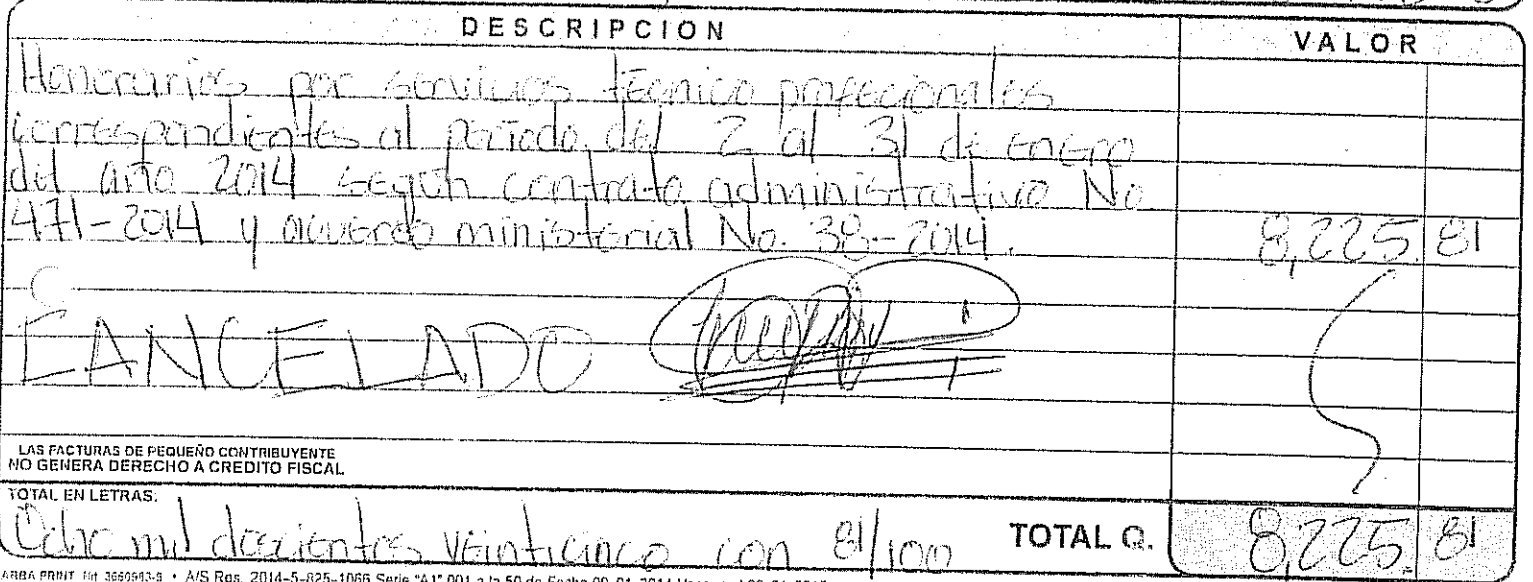 DESCRIPCION VALOR
Honorarios por servicios técnico profecionales
correspondientes al período del 2 al 31 de enero
del año 2014 según contrato administrativo No
471-2014 y acuerdo ministerial No. 38-2014. 8,225.81
CANCELADO
LAS FACTURAS DE PEQUEÑO CONTRIBUYENTE
NO GENERA DERECHO A CREDITO FISCAL
TOTAL EN LETRAS:
Ocho mil doscientos veinticinco con 81/100 TOTAL Q. 8,225.81
ARBA PRINT Nit 3660983-9 • A/S Res. 2014-5-825-1066 Serie "A1" 001 a la 50 de Fecha 09-01-2014